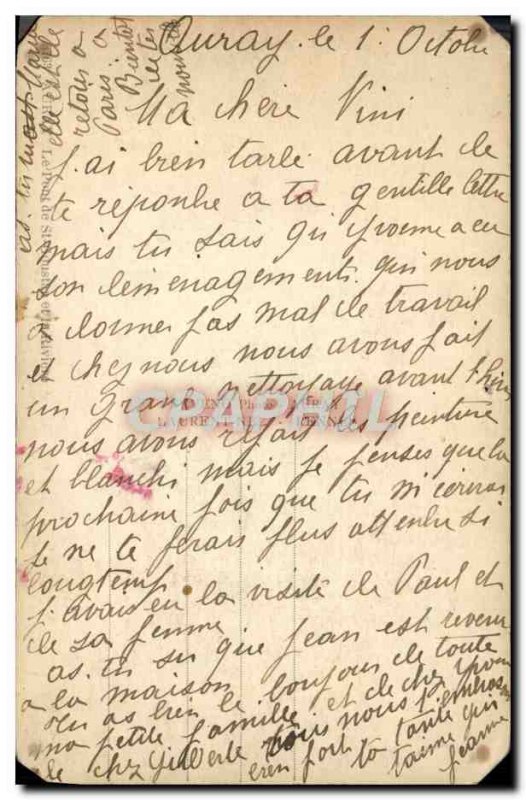 Auray. le 1. Octobre
Ma chère Nini
J'ai bien tardé avant de
te répondre a ta gentille lettre
mais tu sais qu'yvonne a eu
son deménagements qui nous
a donner pas mal de travail
et chez nous nous avons fait
un grand nettoyage avant l'hiver
nous avons refait les peinture
et blanchi mais je penses que la
prochaine fois que tu m'ecriras
je ne te ferais plus attendre si
longtemp
J'avais eu la visite de Paul et
de sa femme
as. tu su que Jean est revenu
a la maison
tu as bien le bonjour de toute
ma petite famille et de chez Yvonne
de chez Gilberte nous nous t'embrassons
bien fort ta tante qui
t'aime
Jeanne
as. tu
elle est de
retour a
Paris
Bientot
CPAPHIL
LAURENT-NEL RENNES
Le Pont de St-Goustan et